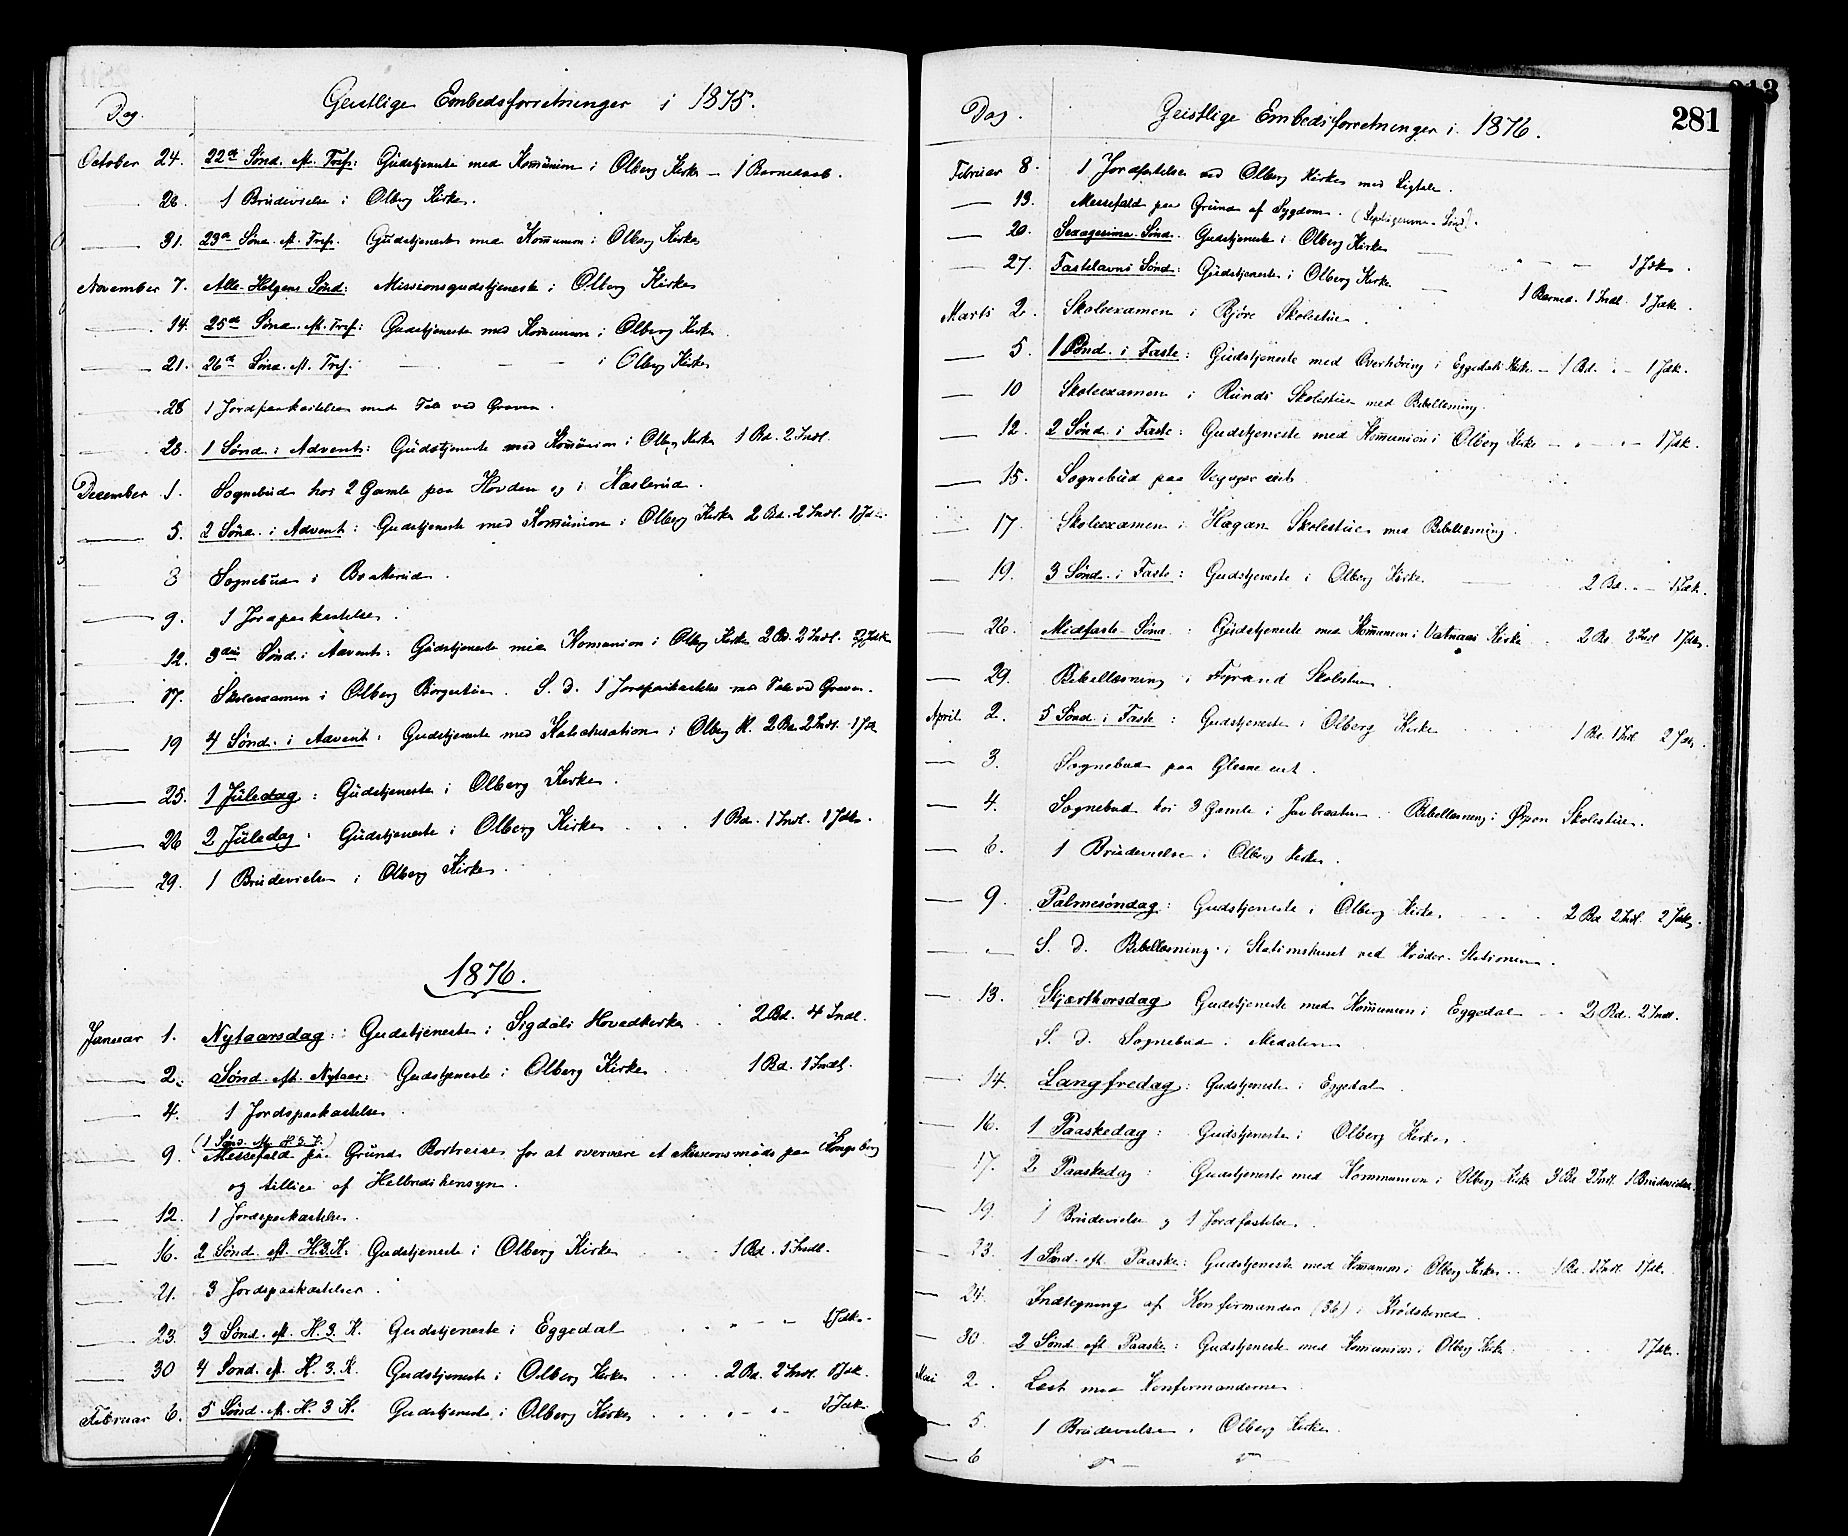 Geistlige Embedsforretninger i 1875.
Dag.
October 24. 22de Sønd. eft. Tref: Gudstjeneste med Kommunion i Olberg Kirke — 1 Barnedaab.
— 28. 1 Brudevielse i Olberg Kirke.
— 31. 23de Sønd. eft. Tref. Gudstjeneste med Kommunion i Olberg Kirke
November 7. Alle Helgens Sønd: Missionsgudstjeneste i Olberg Kirke
— 14. 25de Sønd. eft. Tref: Gudstjeneste med Kommunion i Olberg Kirke.
— 21. 26de Sønd. eft. Tref: — — — i Olberg Kirke
— 28 1 Jordpaakastelse med Tale ved Graven.
— 28. 1 Sønd. i Advent: Gudstjeneste med Kommunion i Olberg Kirke 1 Bd. 2 Indl.
December 1. Sognebud hos 2 Gamle paa Hovden og i Næslerud.
— 5. 2 Sønd. i Advent: Gudstjeneste med Kommunion i Olberg Kirke 2 Bd. 2 Indl. 1 Jdk.
— 8 Sognebud i Brakerud.
— 9. 1 Jordpaakastelse.
— 12. 3die Sønd. i Advent: Gudstjeneste med Kommunion i Olberg Kirke 2 Bd. 2 Indl. 2 Jdk
— 17. Skoleexamen i Olberg Borgestue. S. d. 1 Jordpaakastelse med Tale ved Graven.
— 19 4 Sønd. i Advent: Gudstjeneste med Katechisation i Olberg K. 2 Bd. 2 Indl. 1 Jdk
— 25. 1 Juledag: Gudstjeneste i Olberg Kirke.
— 26 2 Juledag: Gudstjeneste i Olberg Kirke . . . 1 Bd. 1 Indl. 1 Jdk.
— 29. 1 Brudevielse i Olberg Kirke.
1876.
Januar 1. Nytaarsdag: Gudstjeneste i Sigdals Hovedkirke . . 2 Bd. 4 Indl.
— 2. Sønd. eft. Nytaar: Gudstjeneste i Olberg Kirke . . 1 Bd. 1 Indl.
— 4. 1 Jordspaakastelse.
(1 Sønd. eft. H. 3. K.)
— 9. Messefald paa Grund Bortreise for at overvære et Missionsmøde paa Kongsberg
og tillige af Helbredshensyn.
— 12. 1 Jordspaakastelse.
— 16. 2 Sønd. eft. H. 3. K. Gudstjeneste i Olberg Kirke . . . 1 Bd. 1 Indl.
— 21. 3 Jordspaakastelser.
— 23. 3 Sønd. eft. H. 3. K. Gudstjeneste i Eggedal . . . „ — „ — 1 Jdk.
— 30 4 Sønd. eft. H. 3. K. Gudstjeneste i Olberg Kirke . . . 2 Bd. 2 Indl. 1 Jdk.
Februar 6. 5 Sønd. eft. H. 3 K. Gudstjeneste i Olberg Kirke . . . „ — „ — 1 Jdk.
281
Geistlige Embedsforretninger i 1876.
Dag.
Februar 8. 1 Jordfæstelse ved Olberg Kirke med Ligtale.
— 13. Messefald paa Grund af Sygdom. (Septuagesima Sønd.)
— 20. Sexagesima Sønd. Gudstjeneste i Olberg Kirke — „ — — 1 Jdk.
— 27. Fastelavns Sønd: Gudstjeneste i Olberg Kirke — 1 Barned. 1 Indl. 1 Jdk.
Marts 2. Skoleexamen i Bjøre Skolestue.
— 5. 1 Sønd. i Faste: Gudstjeneste med Overhøring i Eggedals Kirke — 1 Bd. „ — 1 Jdk.
— 10 Skoleexamen i Runds Skolestue med Bibellæsning.
— 12. 2 Sønd. i Faste: Gudstjeneste med Kommunion i Olberg Kirke — „ — „ — 1 Jdk.
— 15. Sognebud paa eiet.
— 17. Skoleexamen i Hagan Skolestue med Bibellæsning.
— 19. 3 Sønd. i Faste: Gudstjeneste i Olberg Kirke — 2 Bd. „ — 1 Jdk.
— 26. Midfaste Sønd. : Gudstjeneste med Kommunion i Vatnaas Kirke . 2 Bd. 2 Indl. 1 Jdk.
— 29. Bibellæsning i Skolestue.
April 2. 5 Sønd. i Faste: Gudstjeneste i Olberg Kirke . . . 1 Bd. 1 Indl. 2 Jdk.
— 3. Sognebud paa Glesne eiet.
— 4. Sognebud hos 3 Gamle i . Bibellæsning i Skolestue.
— 6. 1 Brudevielse i Olberg Kirke.
— 9. Palmesøndag: Gudstjeneste i Olberg Kirke. . . . 2 Bd. 2 Indl. 2 Jdk.
— „ S. d. Bibellæsning i Stationshuset ved Krøder-Stationen.
— 13. Skjærthorsdag Gudstjeneste med Kommunion i Eggedal — 2 Bd. 2 Indl.
S. d. Sognebud i Medalen
— 14. Langfredag: Gudstjeneste i Eggedal.
— 16. 1 Paaskedag: Gudstjeneste i Olberg Kirke.
17. 2 Paaskedag: Gudstjeneste med Kommunion i Olberg Kirke 3 Bd. 2 Indl. 1 Brudevielse.
— 19. 1 Brudevielse og 1 Jordfæstelse.
— 23. 1 Sønd. eft. Paaske: Gudstjeneste med Kommunion i Olberg Kirke . . 1 Bd. 1 Indl. 1 Jdk.
— 24. Indtegning af Konfirmander (36) i Krødsherred.
— 30. 2 Sønd. eft. Paaske: Gudstjeneste med Kommunion i Olberg Kirke . . 1 Jdk.
Mai 2. Læst med Konfirmanderne.
— 5. 1 Brudevielse i Olberg Kirke.
— 6